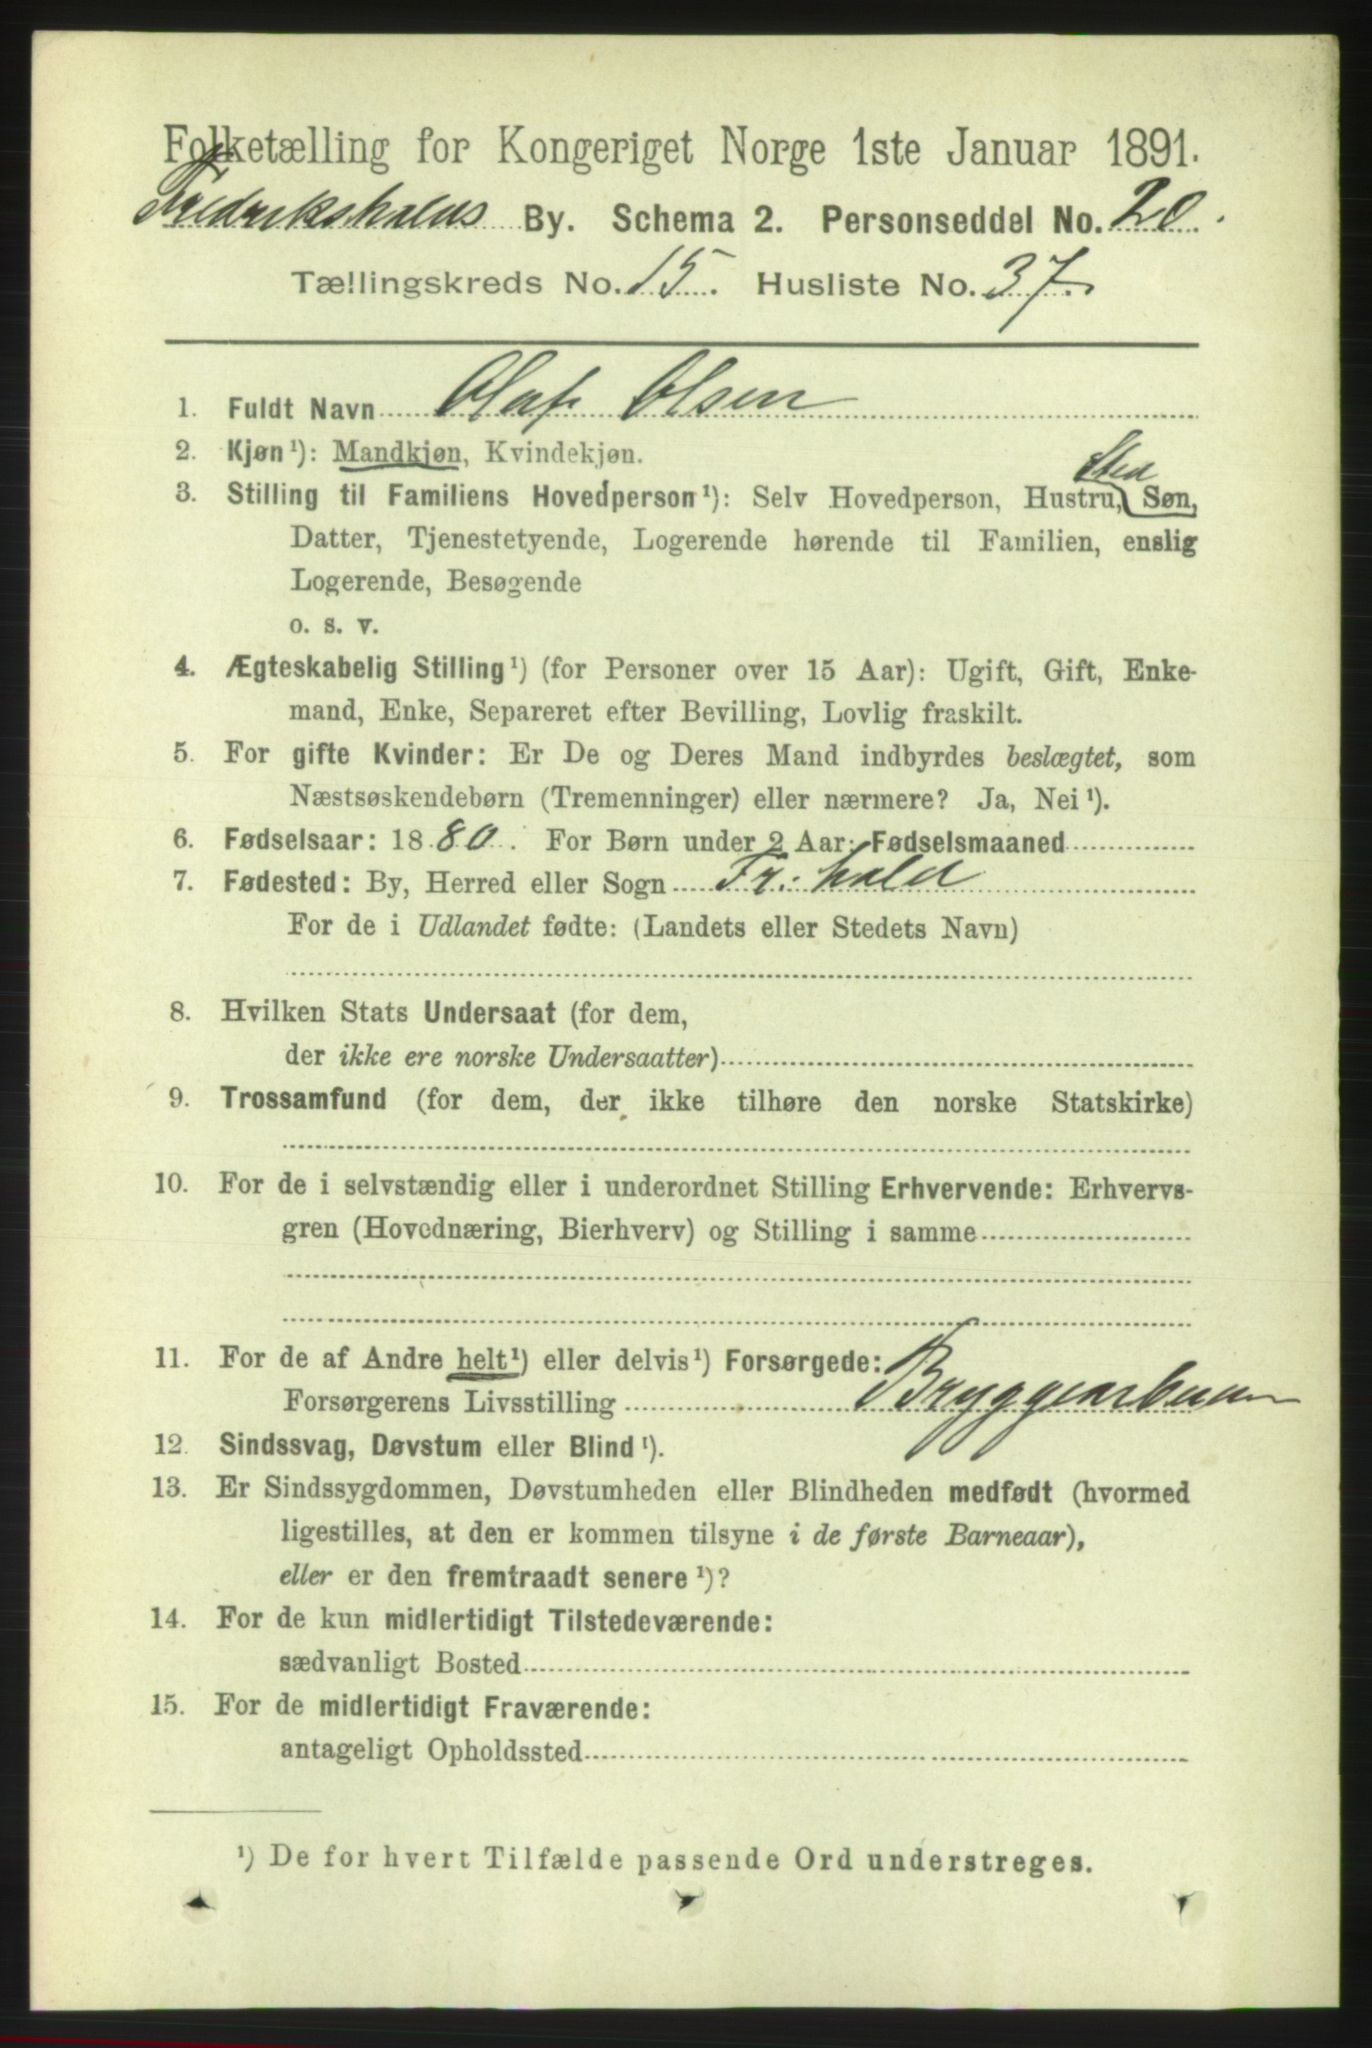 Folketælling for Kongeriget Norge 1ste Januar 1891.
Fredrikshalds By. Schema 2. Personseddel No. 20.
Tællingskreds No. 15. Husliste No. 37.
1. Fuldt Navn Olaf Olsen
2. Kjøn¹): Mandkjøn, Kvindekjøn.
Sted
3. Stilling til Familiens Hovedperson¹): Selv Hovedperson, Hustru, Søn,
Datter, Tjenestetyende, Logerende hørende til Familien, enslig
Logerende, Besøgende
o. s. v.
4. Ægteskabelig Stilling¹) (for Personer over 15 Aar): Ugift, Gift, Enke-
mand, Enke, Separeret efter Bevilling, Lovlig fraskilt.
5. For gifte Kvinder: Er De og Deres Mand indbyrdes beslægtet, som
Næstsøskendebørn (Tremenninger) eller nærmere? Ja, Nei¹).
6. Fødselsaar: 1880. For Børn under 2 Aar: Fødselsmaaned
7. Fødested: By, Herred eller Sogn Fr.hald
For de i Udlandet fødte: (Landets eller Stedets Navn)
8. Hvilken Stats Undersaat (for dem,
der ikke ere norske Undersaatter)
9. Trossamfund (for dem, der ikke tilhøre den norske Statskirke)
10. For de i selvstændig eller i underordnet Stilling Erhvervende: Erhvervs-
gren (Hovednæring, Bierhverv) og Stilling i samme
11. For de af Andre helt¹) eller delvis¹) Forsørgede:
Forsørgerens Livsstilling Bryggearbeider
12. Sindssvag, Døvstum eller Blind¹).
13. Er Sindssygdommen, Døvstumheden eller Blindheden medfødt (hvormed
ligestilles, at den er kommen tilsyne i de første Barneaar),
eller er den fremtraadt senere¹)?
14. For de kun midlertidigt Tilstedeværende:
sædvanligt Bosted
15. For de midlertidigt Fraværende:
antageligt Opholdssted
¹) De for hvert Tilfælde passende Ord understreges.